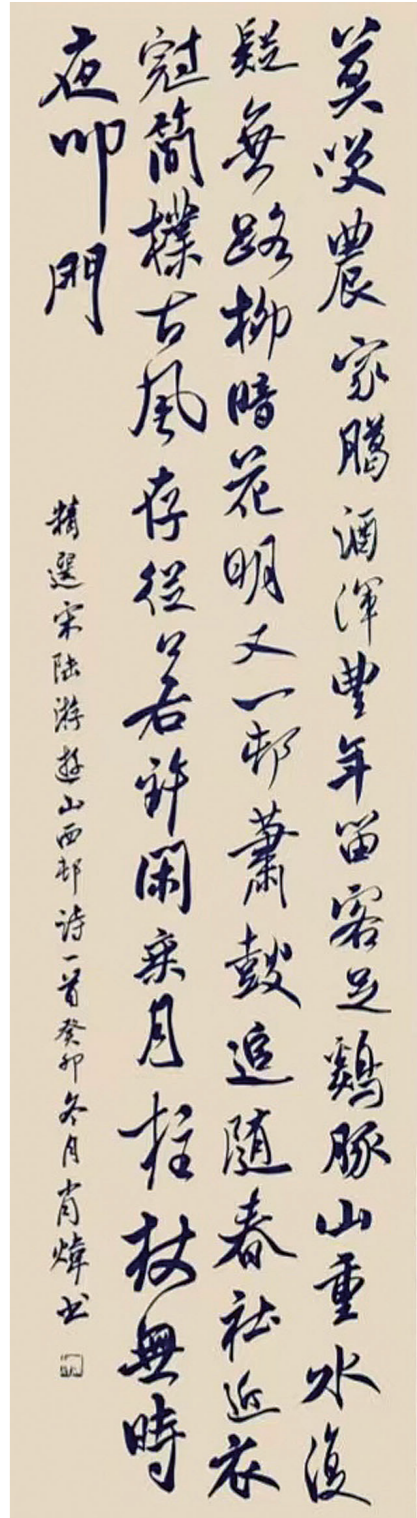 莫咲農家臘酒渾豐年留客足鷄豚山重水復
疑無路柳暗花明又一邨蕭鼓追隨春社近衣
冠簡樸古風存從今若許閑乘月柱杖無時
夜叩門
精選宋陸游遊山西邨詩一首癸卯冬月肖煒书